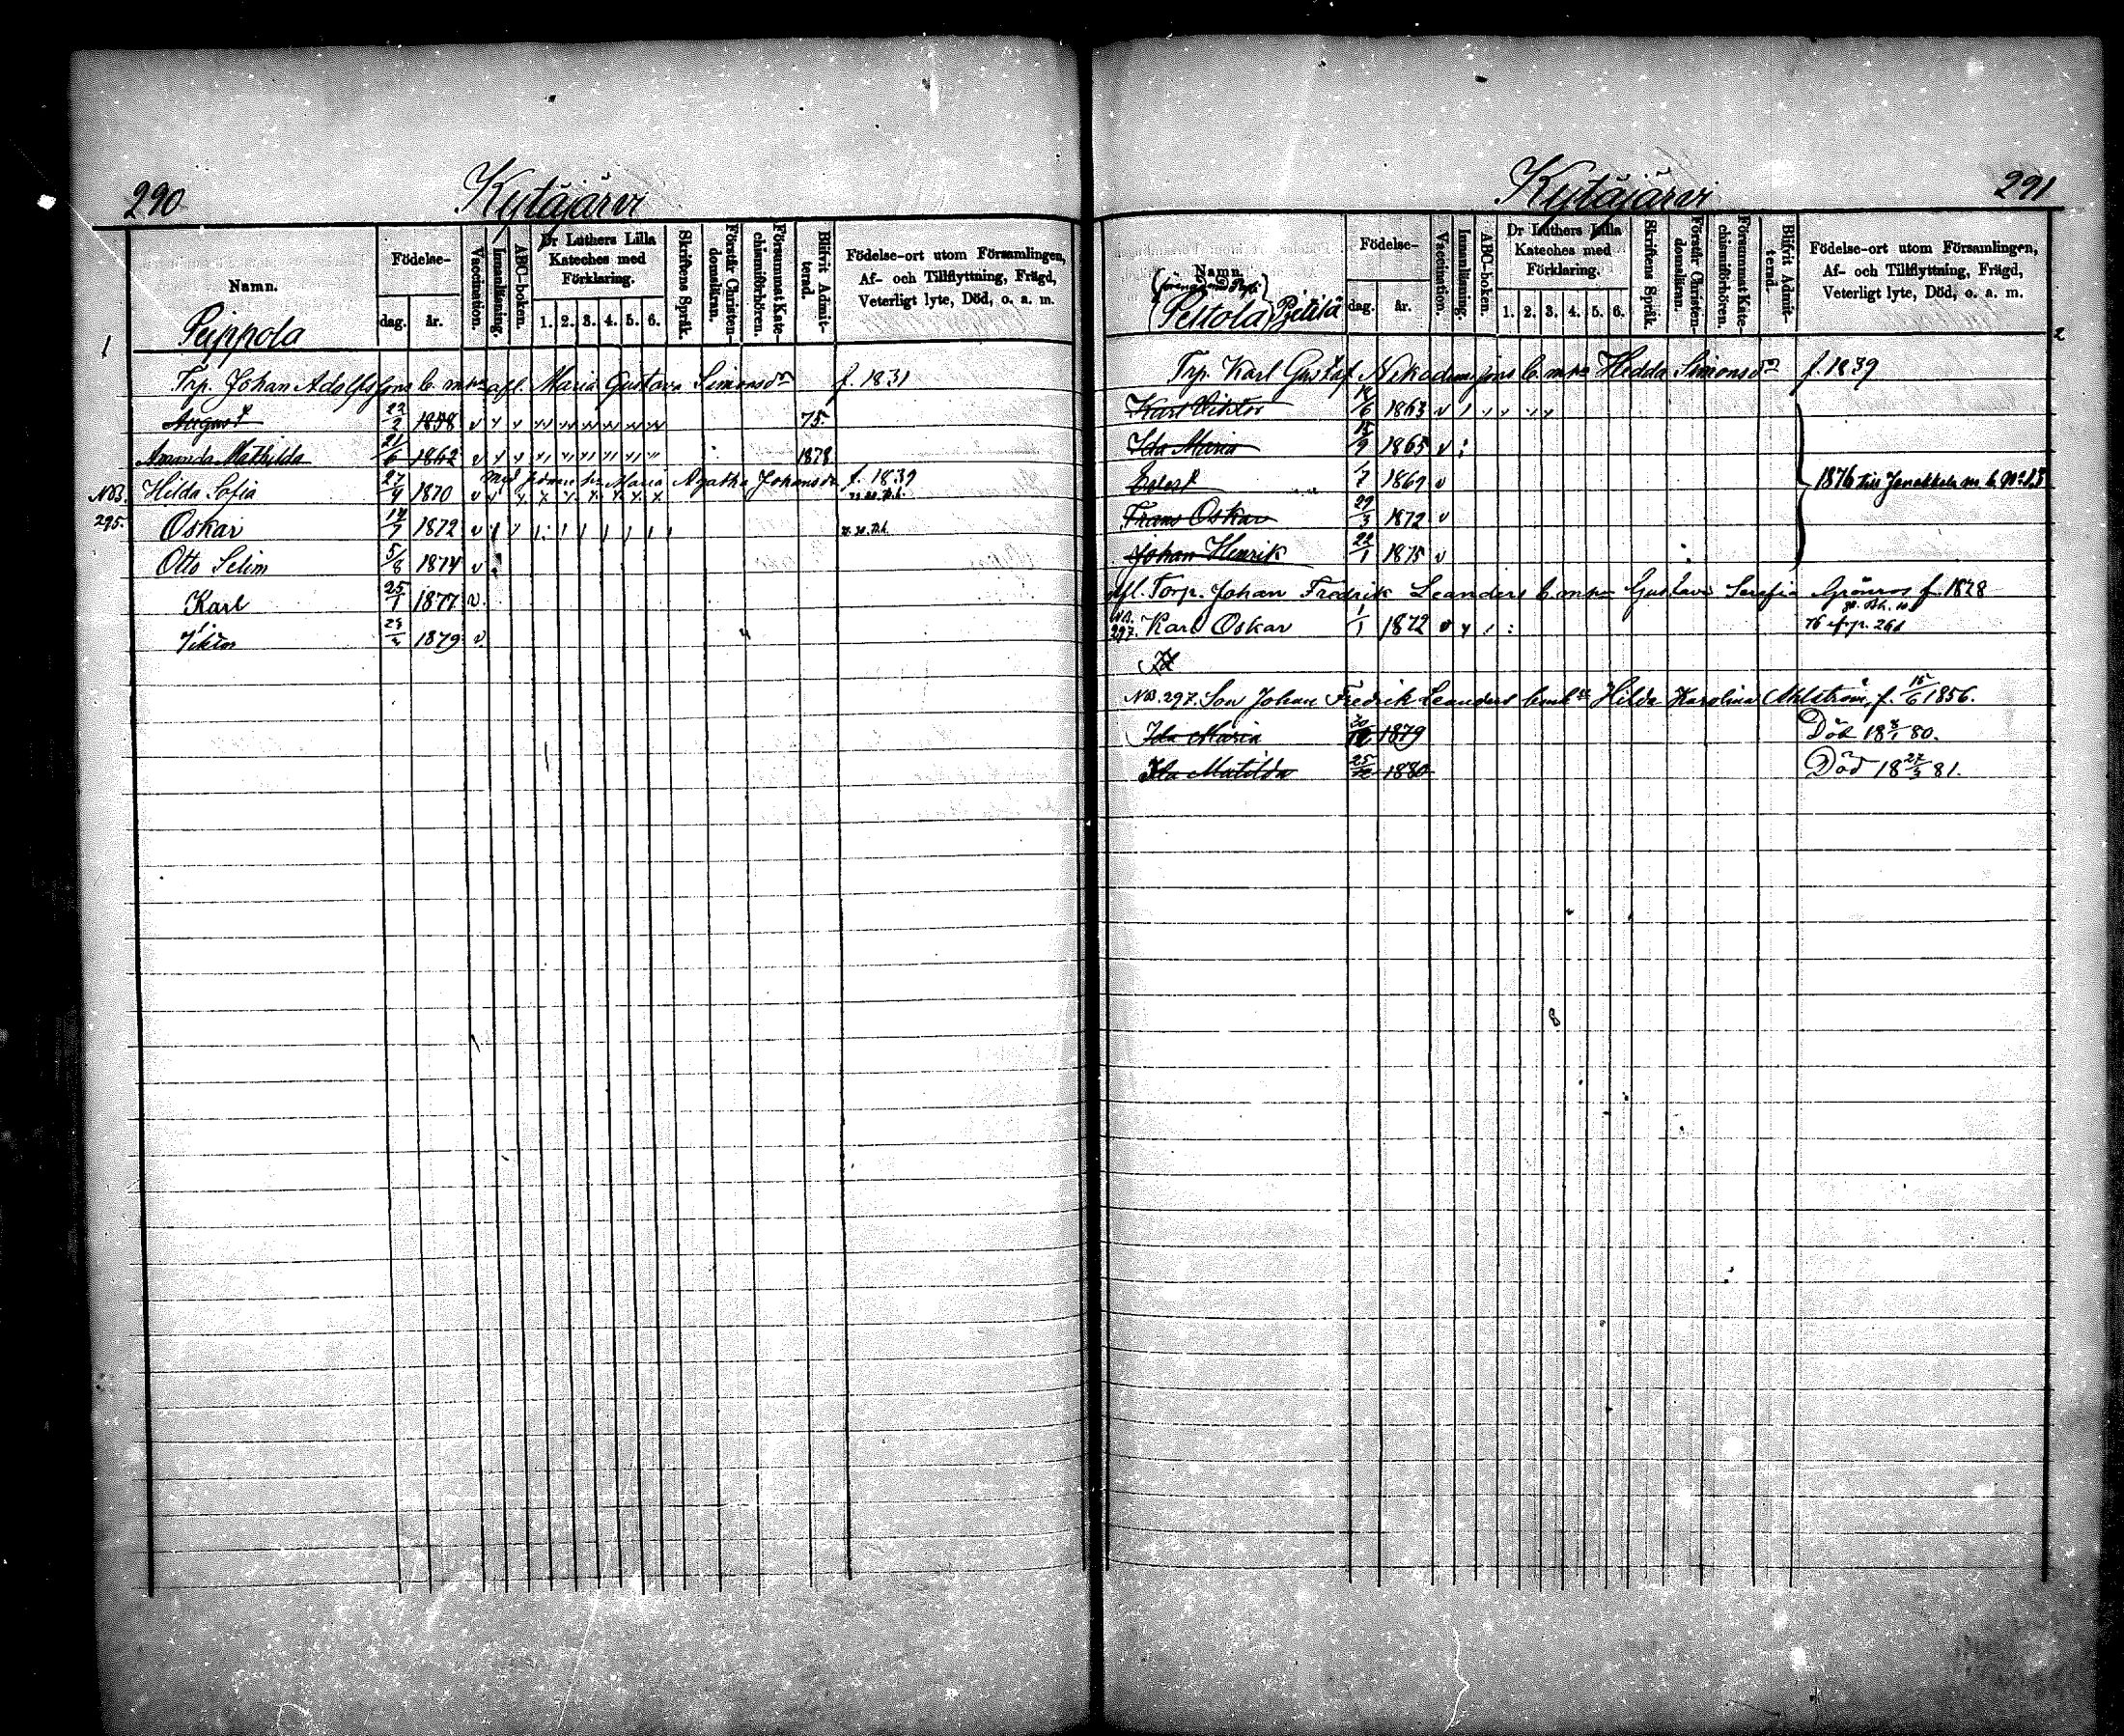 290
Kytäjärvi
Namn.
Födelse-
dag.
år.
Vaccination.
Innanläsning.
ABC-boken.
Dr Luthers Lilla Kateches med Förklaring.
1. 2. 3. 4. 5. 6.
Skriftens Språk.
Förstår Christendomsläran.
Försummat Katechismiförhören.
Blifvit Admitterad.
Födelse-ort utom Församlingen, Af- och Tillflyttning, Frägd, Veterligt lyte, Död, o. a. m.
1
Peippola
Trp. Johan Adolfsfons b. m. afl. Maria Gustava Simonsdr f. 1831
August 22/2 1858 v 75.
Amanda Mathilda 21/6 1862 v 1878
med Maria Agatha Johansdr f. 1839
NB. Hilda Sofia 27/4 1870 v
295. Oskar 14/7 1872 v
Otto Selim 5/8 1874 v
Karl 25/1 1877 v.
Viktor 1879 v.
Kytäjärvi
291
Namn.
Födelse-
dag.
år.
Vaccination.
Innanläsning.
ABC-boken.
Dr Luthers Lilla Kateches med Förklaring.
1. 2. 3. 4. 5. 6.
Skriftens Språk.
Förstår Christendomsläran.
Försummat Katechismiförhören.
Blifvit Admitterad.
Födelse-ort utom Församlingen, Af- och Tillflyttning, Frägd, Veterligt lyte, Död, o. a. m.
2
Trp. Karl Gustaf Nikodemifons b. m. Hedda Simonsdr f. 1839
Karl Viktor 1863 v
Ida Maria 15/9 1865 v
1/7 1869 v
1876 till Janakkala
Frans Oskar 29/3 1872 v
Johan Henrik 22/1 1875 v
afl. Torp. Johan Fredrik Leanders b. m. Gustava Serafia Grönroos f. 1828
NB. 297. Karl Oskar 1/1 1872 v
NB. 297. Son Johan Fredrik Leanders b. m. Hilda Karolina Ahlström, f. 15/6 1856.
Ida Maria 1879 Död 18 8/1 80.
Ida Matilda 1880 Död 18 27/3 81.